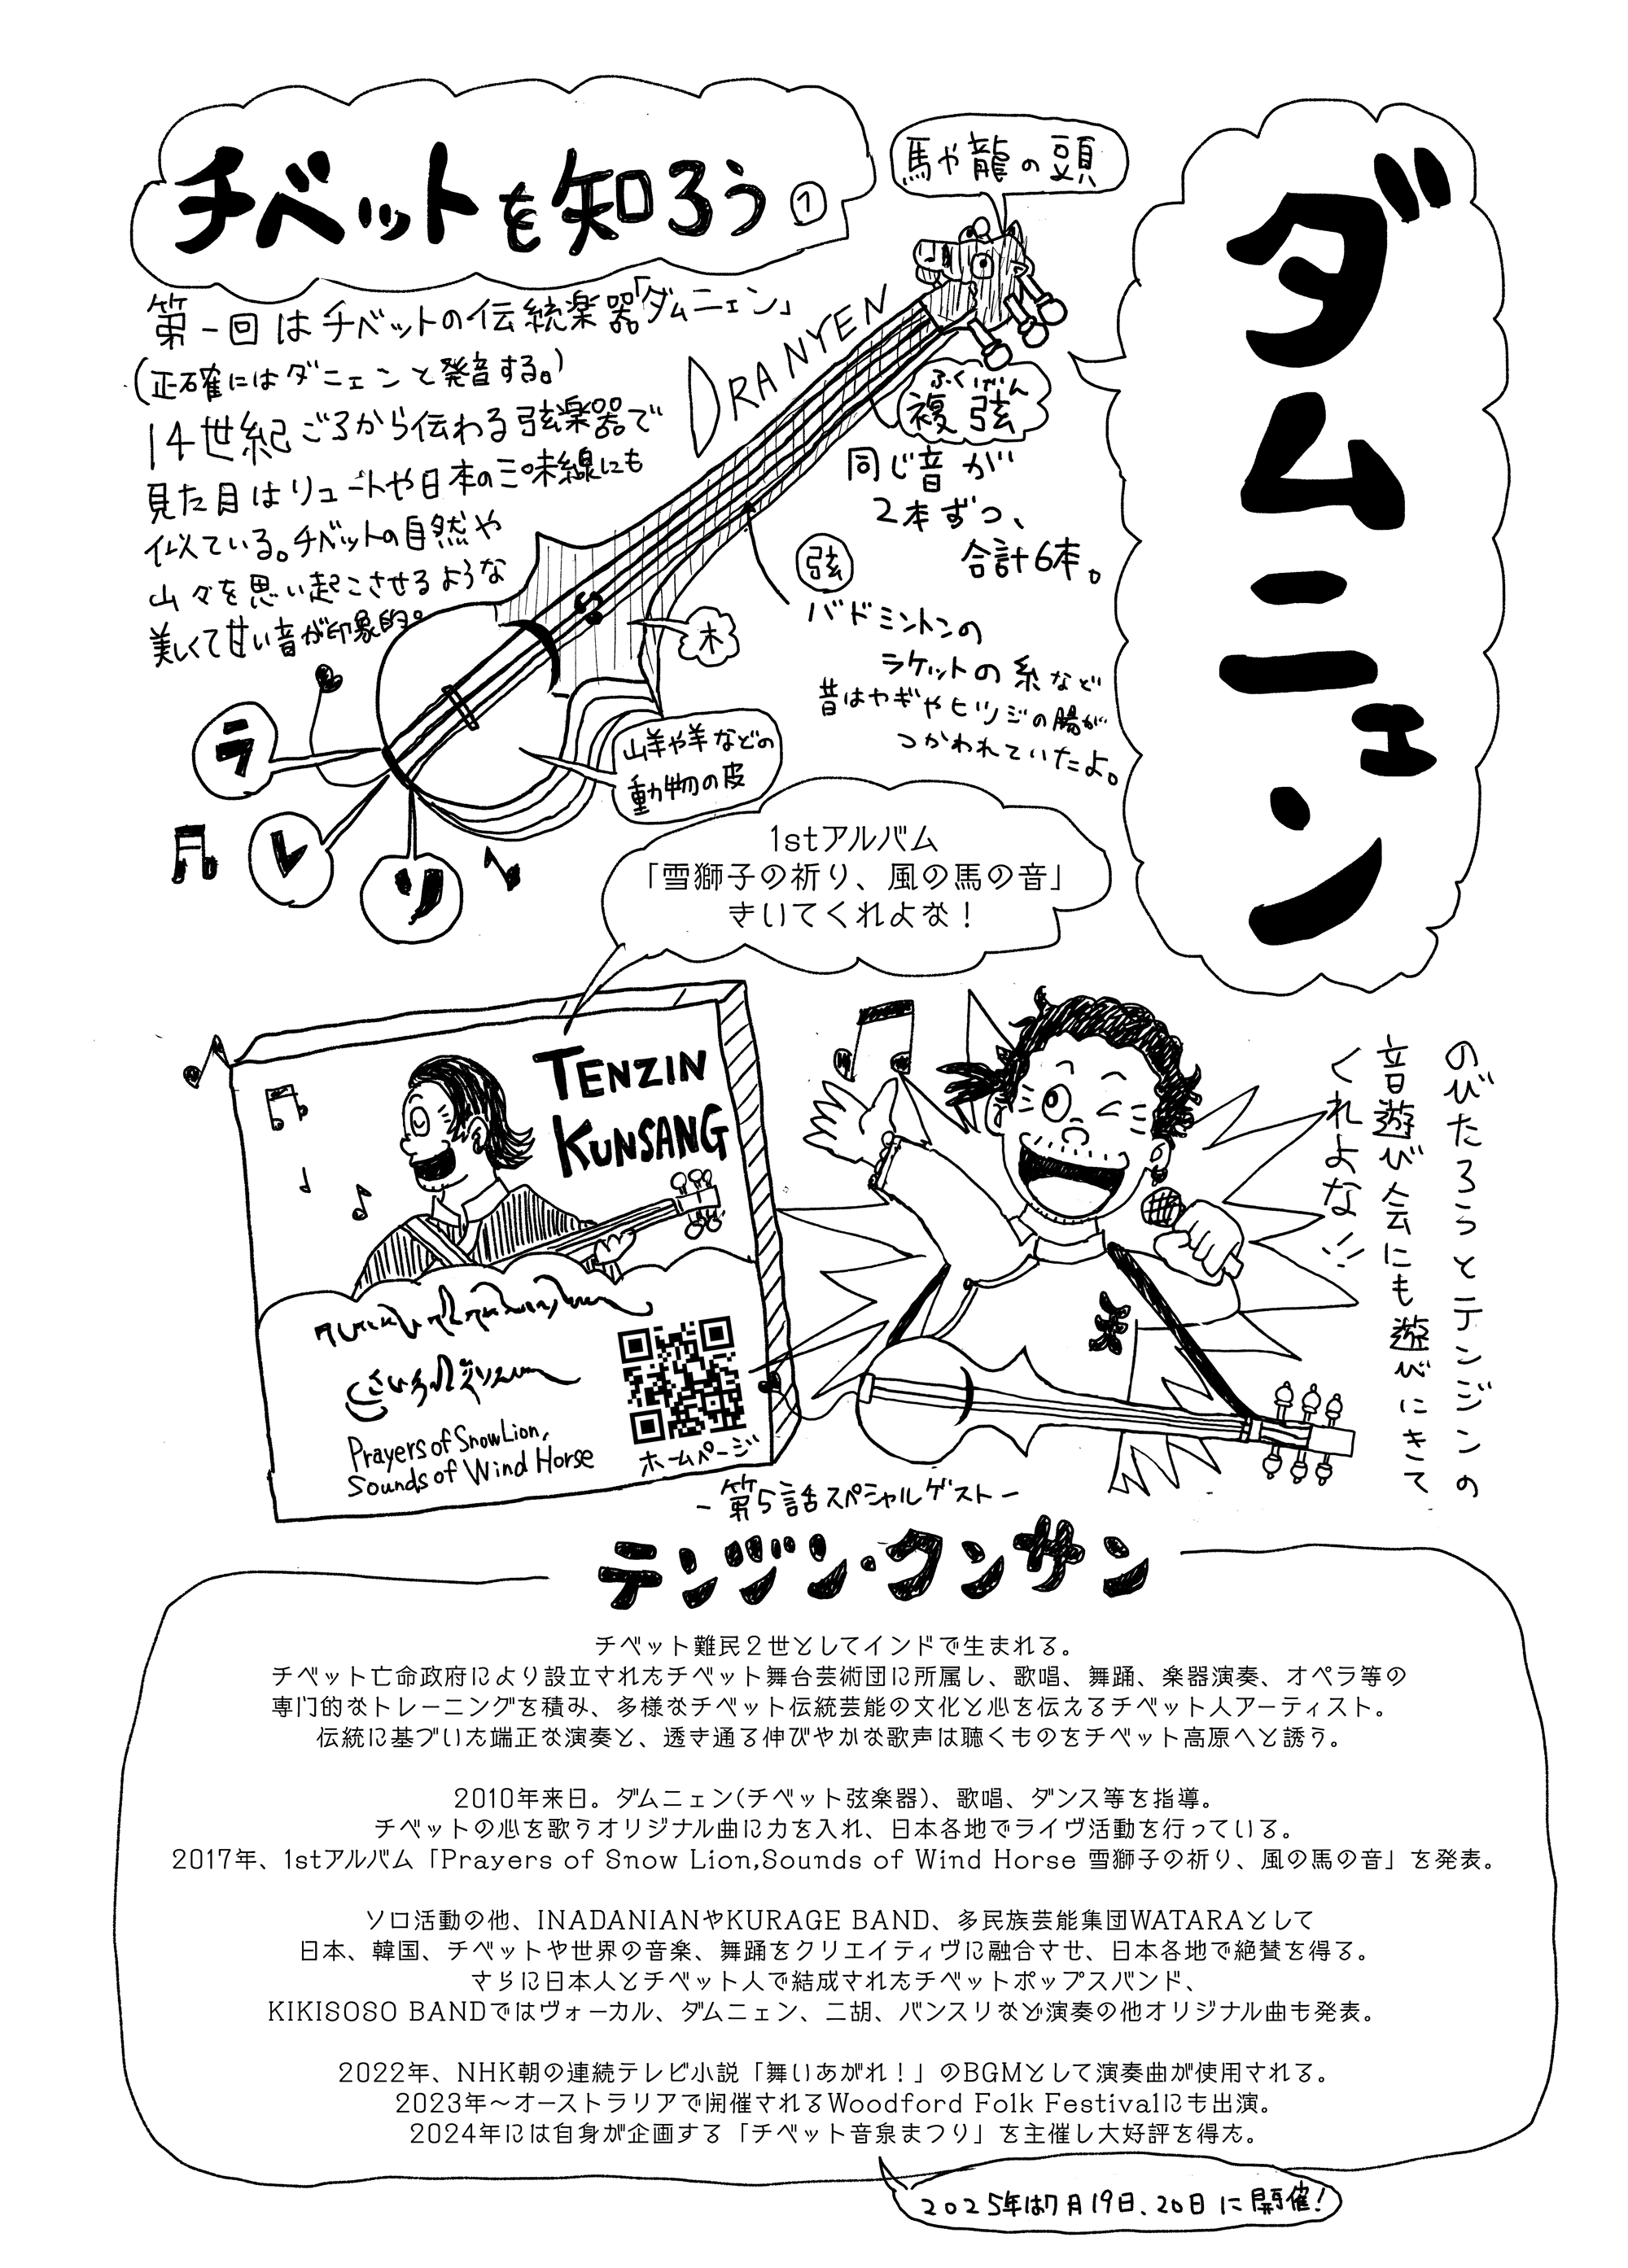 チベットを知ろう①
馬や龍の頭
ダムニェン
第一回はチベットの伝統楽器「ダムニェン」
(正確にはダニェンと発音する。)
14世紀ごろから伝わる弦楽器で
見た目はリュートや日本の三味線にも
似ている。チベットの自然や
山々を思い起こさせるような
美しくて甘い音が印象的。
DRANYEN
ふくげん
複弦
同じ音が
2本ずつ、
合計6本。
弦
バドミントンの
ラケットの糸など
昔はヤギやヒツジの腸が
つかわれていたよ。
木
山羊や羊などの
動物の皮
ラ
レ
ソ
1stアルバム
「雪獅子の祈り、風の馬の音」
きいてくれよな！
TENZIN
KUNSANG
Prayers of Snow Lion,
Sounds of Wind Horse
ホームページ
のびたろうとテンジンの
音遊び会にも遊びにきて
くれよな!!
-第5話スペシャルゲスト-
テンジン・クンサン
チベット難民２世としてインドで生まれる。
チベット亡命政府により設立されたチベット舞台芸術団に所属し、歌唱、舞踊、楽器演奏、オペラ等の
専門的なトレーニングを積み、多様なチベット伝統芸能の文化と心を伝えるチベット人アーティスト。
伝統に基づいた端正な演奏と、透き通る伸びやかな歌声は聴くものをチベット高原へと誘う。
2010年来日。ダムニェン(チベット弦楽器)、歌唱、ダンス等を指導。
チベットの心を歌うオリジナル曲に力を入れ、日本各地でライヴ活動を行っている。
2017年、1stアルバム「Prayers of Snow Lion,Sounds of Wind Horse 雪獅子の祈り、風の馬の音」を発表。
ソロ活動の他、INADANIANやKURAGE BAND、多民族芸能集団WATARAとして
日本、韓国、チベットや世界の音楽、舞踊をクリエイティヴに融合させ、日本各地で絶賛を得る。
さらに日本人とチベット人で結成されたチベットポップスバンド、
KIKISOSO BANDではヴォーカル、ダムニェン、二胡、バンスリなど演奏の他オリジナル曲も発表。
2022年、NHK朝の連続テレビ小説「舞いあがれ！」のBGMとして演奏曲が使用される。
2023年〜オーストラリアで開催されるWoodford Folk Festivalにも出演。
2024年には自身が企画する「チベット音泉まつり」を主催し大好評を得た。
2025年は7月19日、20日に開催!